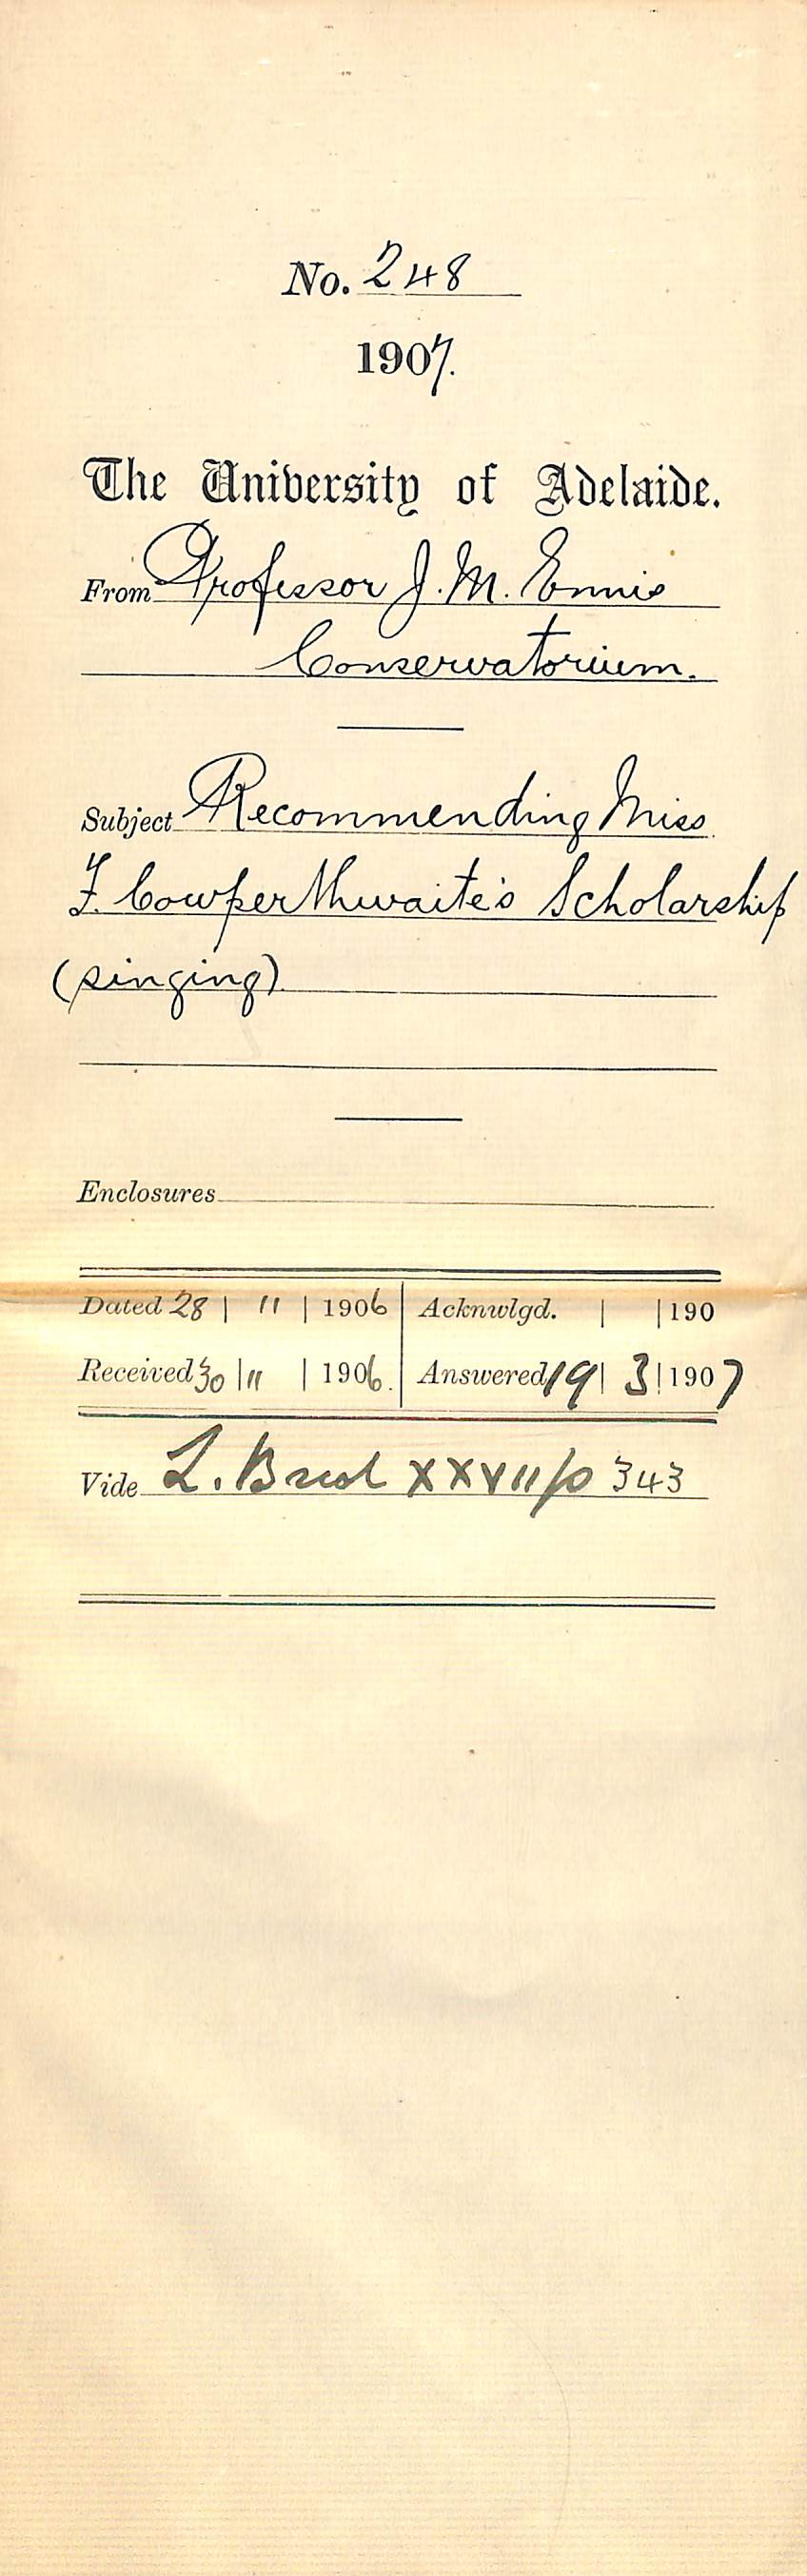 No. 248
1907.
The University of Adelaide.
From Professor J. M. Ennis
Conservatorium.
Subject Recommending Miss
F. Cowperthwaite's Scholarship
(singing)
Enclosures
Dated 28 | 11 | 1906 | Acknwlgd. | | 190
Received 30 | 11 | 1906. | Answered 19 | 3 | 1907
Vide L. XXVII p 343